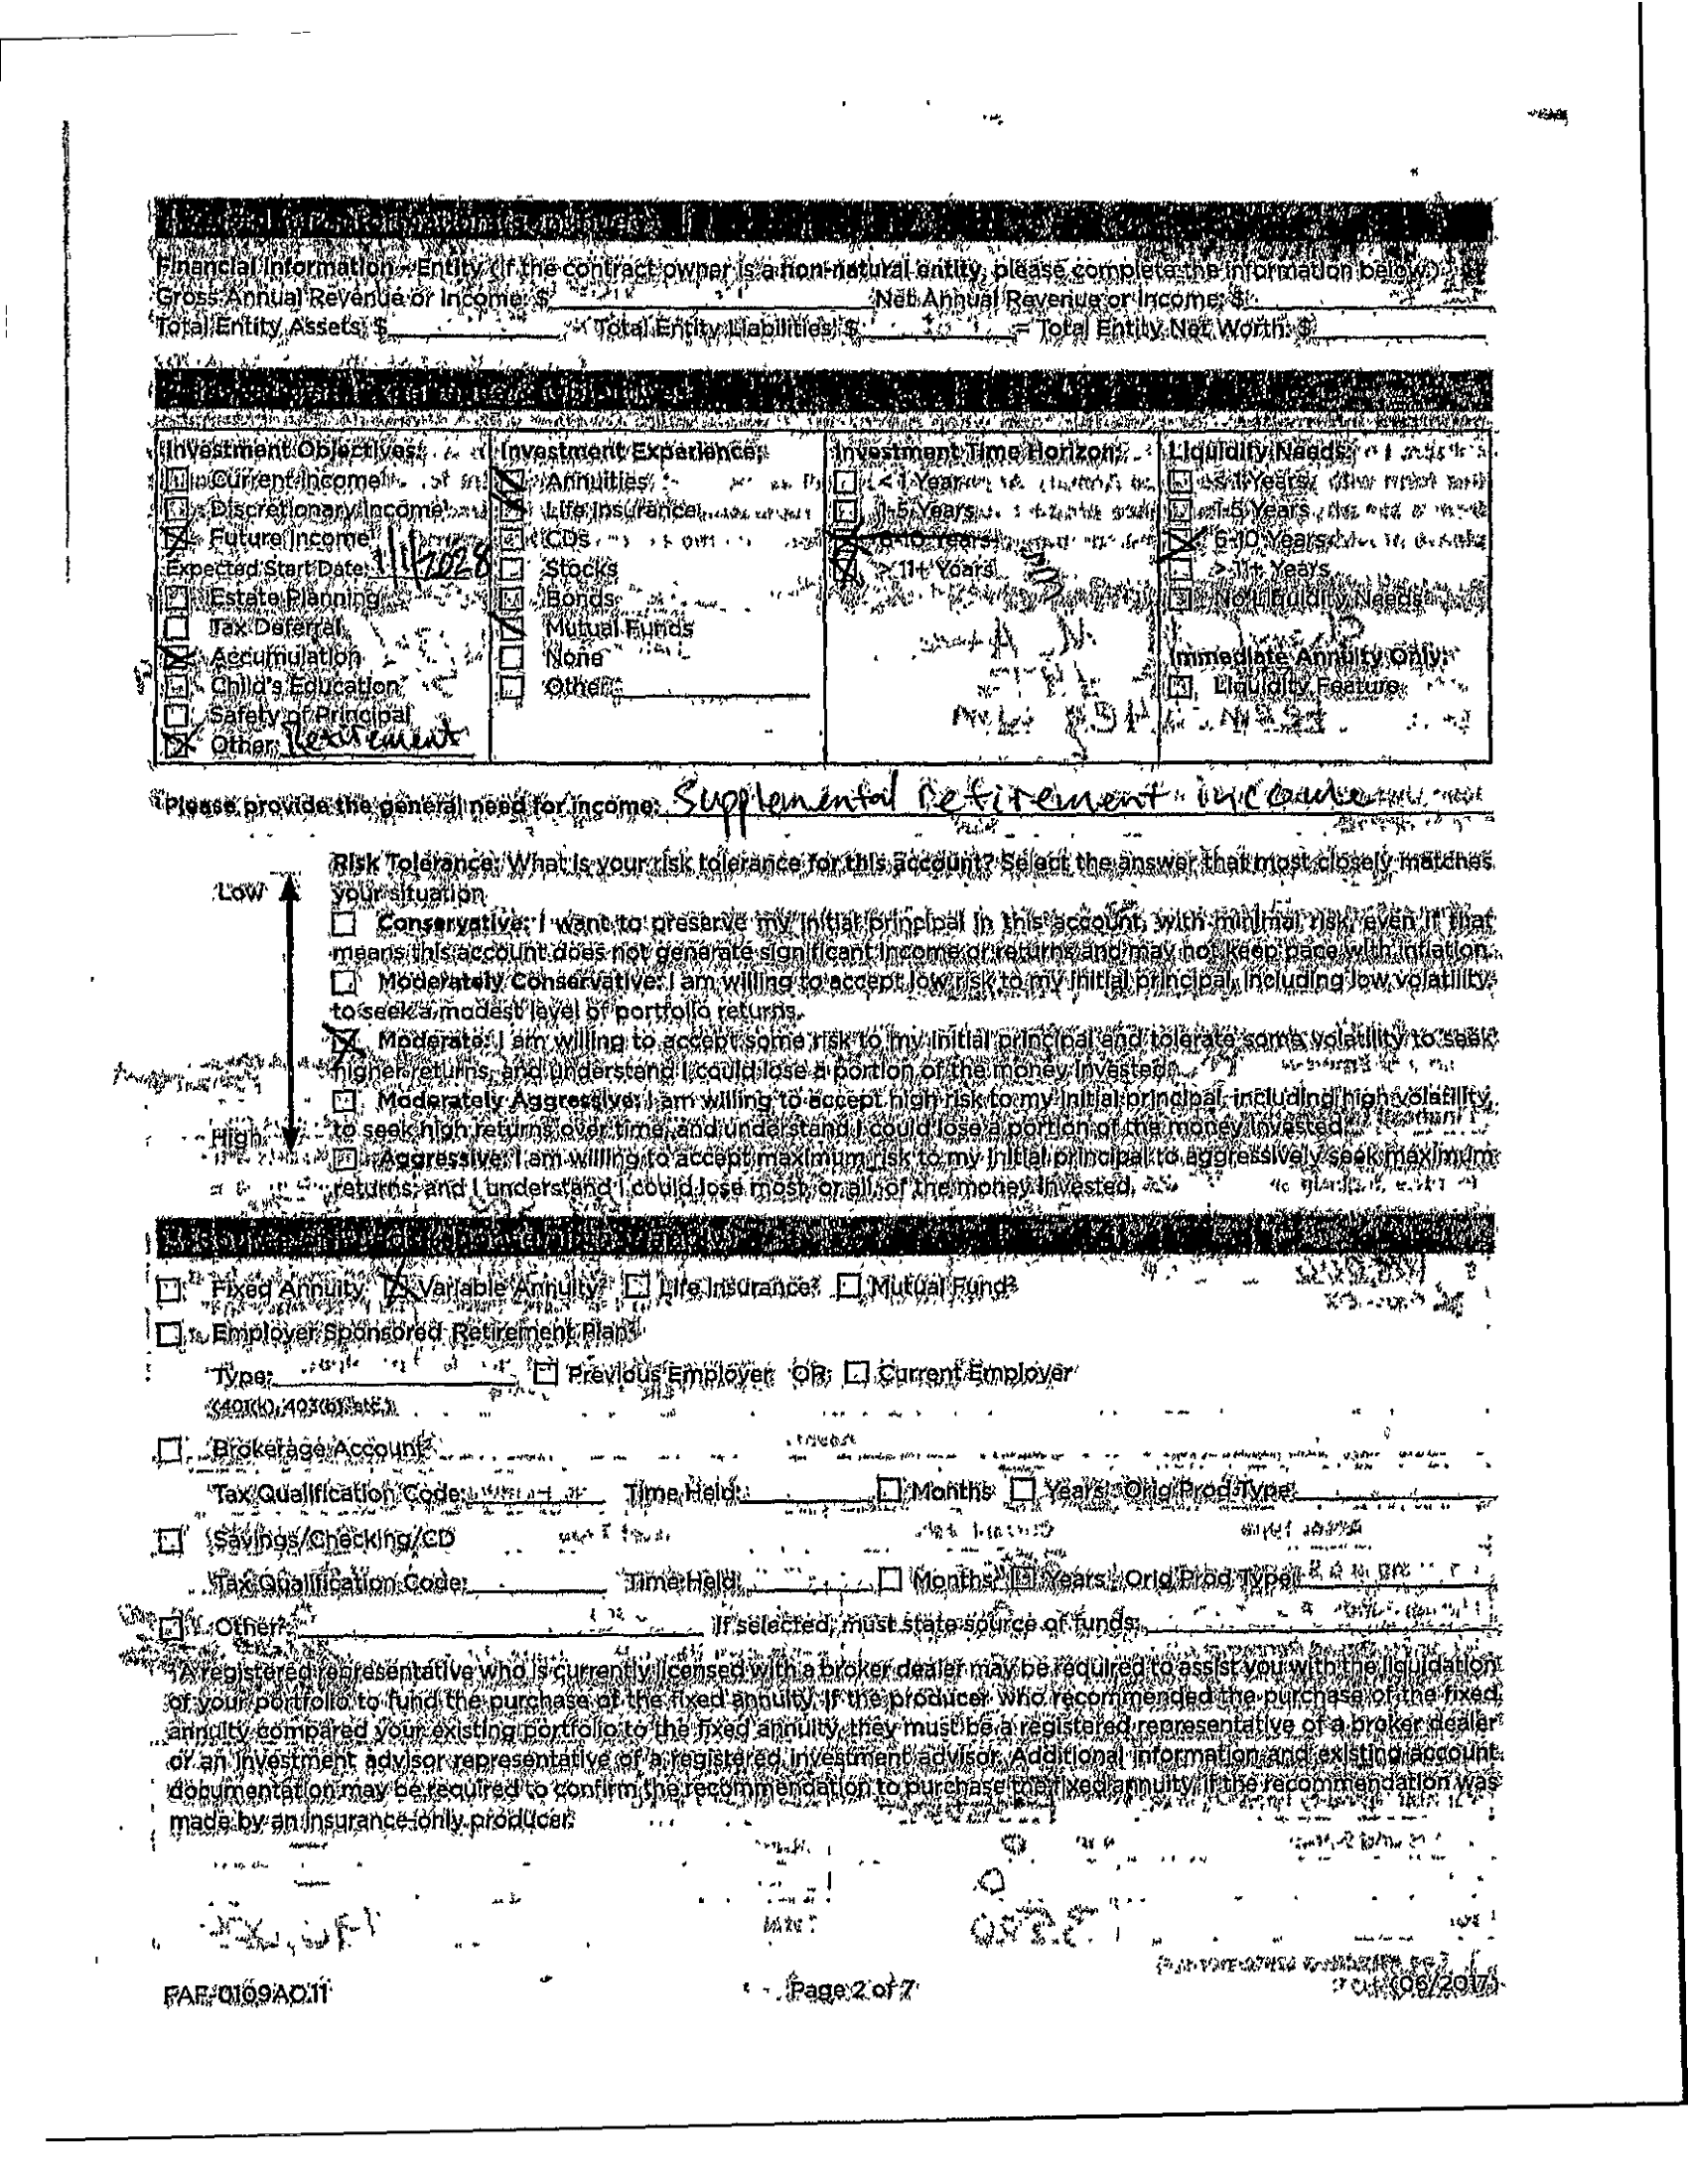 Financial Information - Entity (if the contract owner is a non-natural entity, please complete the information below.)
Gross Annual Revenue or Income: $ Net Annual Revenue or Income: $
Total Entity Assets: $ - Total Entity Liabilities: $ = Total Entity Net Worth: $
Investment Objectives:
Current Income
Discretionary Income
Future Income
Expected Start Date: 1/1/2028
Estate Planning
Tax Deferral
Accumulation
Child's Education
Safety of Principal
Other: Retirement
Investment Experience:
Annuities
Life Insurance
CDs
Stocks
Bonds
Mutual Funds
None
Other:
Investment Time Horizon:
< 1 Year
1-5 Years
6-10 Years
> 11+ Years
Liquidity Needs:
≤ 1 Years
1-5 Years
6-10 Years
> 11+ Years
No Liquidity Needs
Immediate Annuity Only:
Liquidity Feature
Please provide the general need for income: Supplemental retirement income
Risk Tolerance: What is your risk tolerance for this account? Select the answer that most closely matches
Low your situation.
Conservative: I want to preserve my initial principal in this account, with minimal risk, even if that
means this account does not generate significant income or returns and may not keep pace with inflation.
Moderately Conservative: I am willing to accept low risk to my initial principal, including low volatility,
to seek a modest level of portfolio returns.
Moderate: I am willing to accept some risk to my initial principal and tolerate some volatility to seek
higher returns, and understand I could lose a portion of the money invested.
Moderately Aggressive: I am willing to accept high risk to my initial principal, including high volatility,
High to seek high returns over time, and understand I could lose a portion of the money invested.
Aggressive: I am willing to accept maximum risk to my initial principal to aggressively seek maximum
returns, and I understand I could lose most, or all, of the money invested.
Fixed Annuity Variable Annuity² Life Insurance² Mutual Fund²
Employer Sponsored Retirement Plan²
Type: Previous Employer OR Current Employer
(401(k), 403(b), etc.)
Brokerage Account²
Tax Qualification Code: Time Held: Months Years Orig Prod Type:
Savings/Checking/CD
Tax Qualification Code: Time Held: Months Years Orig Prod Type:
Other²: If selected, must state source of funds:
²A registered representative who is currently licensed with a broker dealer may be required to assist you with the liquidation
of your portfolio to fund the purchase of the fixed annuity. If the producer who recommended the purchase of the fixed
annuity compared your existing portfolio to the fixed annuity, they must be a registered representative of a broker dealer
or an investment advisor representative of a registered investment advisor. Additional information and existing account
documentation may be required to confirm the recommendation to purchase the fixed annuity, if the recommendation was
made by an insurance-only producer.
FAF-0109AO.11 Page 2 of 7 (06/2017)